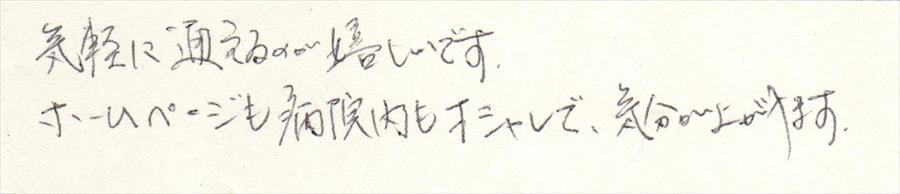 気軽に通えるのが嬉しいです.
ホームページも病院内もオシャレで、気分が上がります.